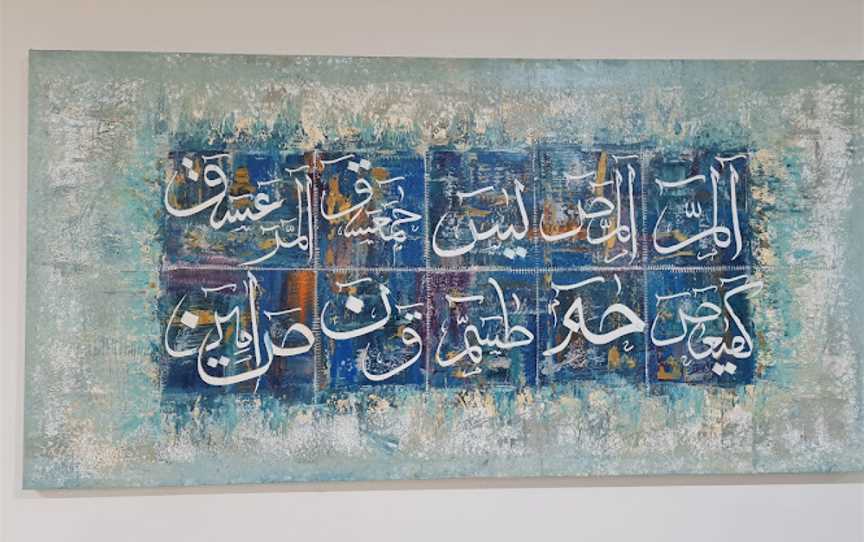 الٓمّٓ الٓمّٓصٓ يٰسٓ حٰمٓعٓسٓقٓ الٓمّٓرٰ عٓسٓقٓ
كٓهٰيٰعٓصٓ حٰمٓ طٰسٓمّٓ قٓ نٓ صٓ اٰمين